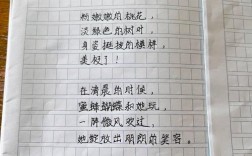 粉嫩嫩的桃花，
淡绿色的树叶，
身姿挺拔的模样，
美极了！
在清晨的时候，
蜜蜂蝴蝶和她玩，
一阵微风吹过，
她绽放出明朗的笑容。